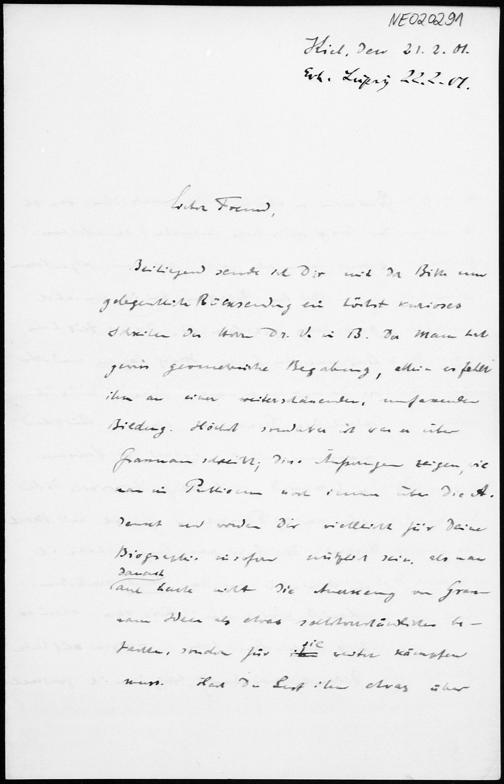 NE020291
Kiel, den 21. 2. 01.
Erh. Leipzig 22.2.01.
Lieber Freund,
Beiliegend sende ich Dir mit der Bitte um
gelegentliche Rücksendung ein höchst kurioses
Schreiben des Herrn Dr. V. in B. Der Mann hat
gewiss geometrische Begabung, allein es fehlt
ihm an einer weiterschauenden, umfassenden
Bildung. Höchst sonderbar ist was er über
Grassmann schreibt; diese Äusserungen zeigen, wie
man in noch immer über die A.
denkt und werden Dir vielleicht für Deine
Biographie insofern nützlich sein, als man
danach
auch heute nicht die von Grass-
mann Ideen als etwas selbstverständliches be-
, sondern für sie weiter kämpfen
muss. Hast Du Lust ihm etwas über